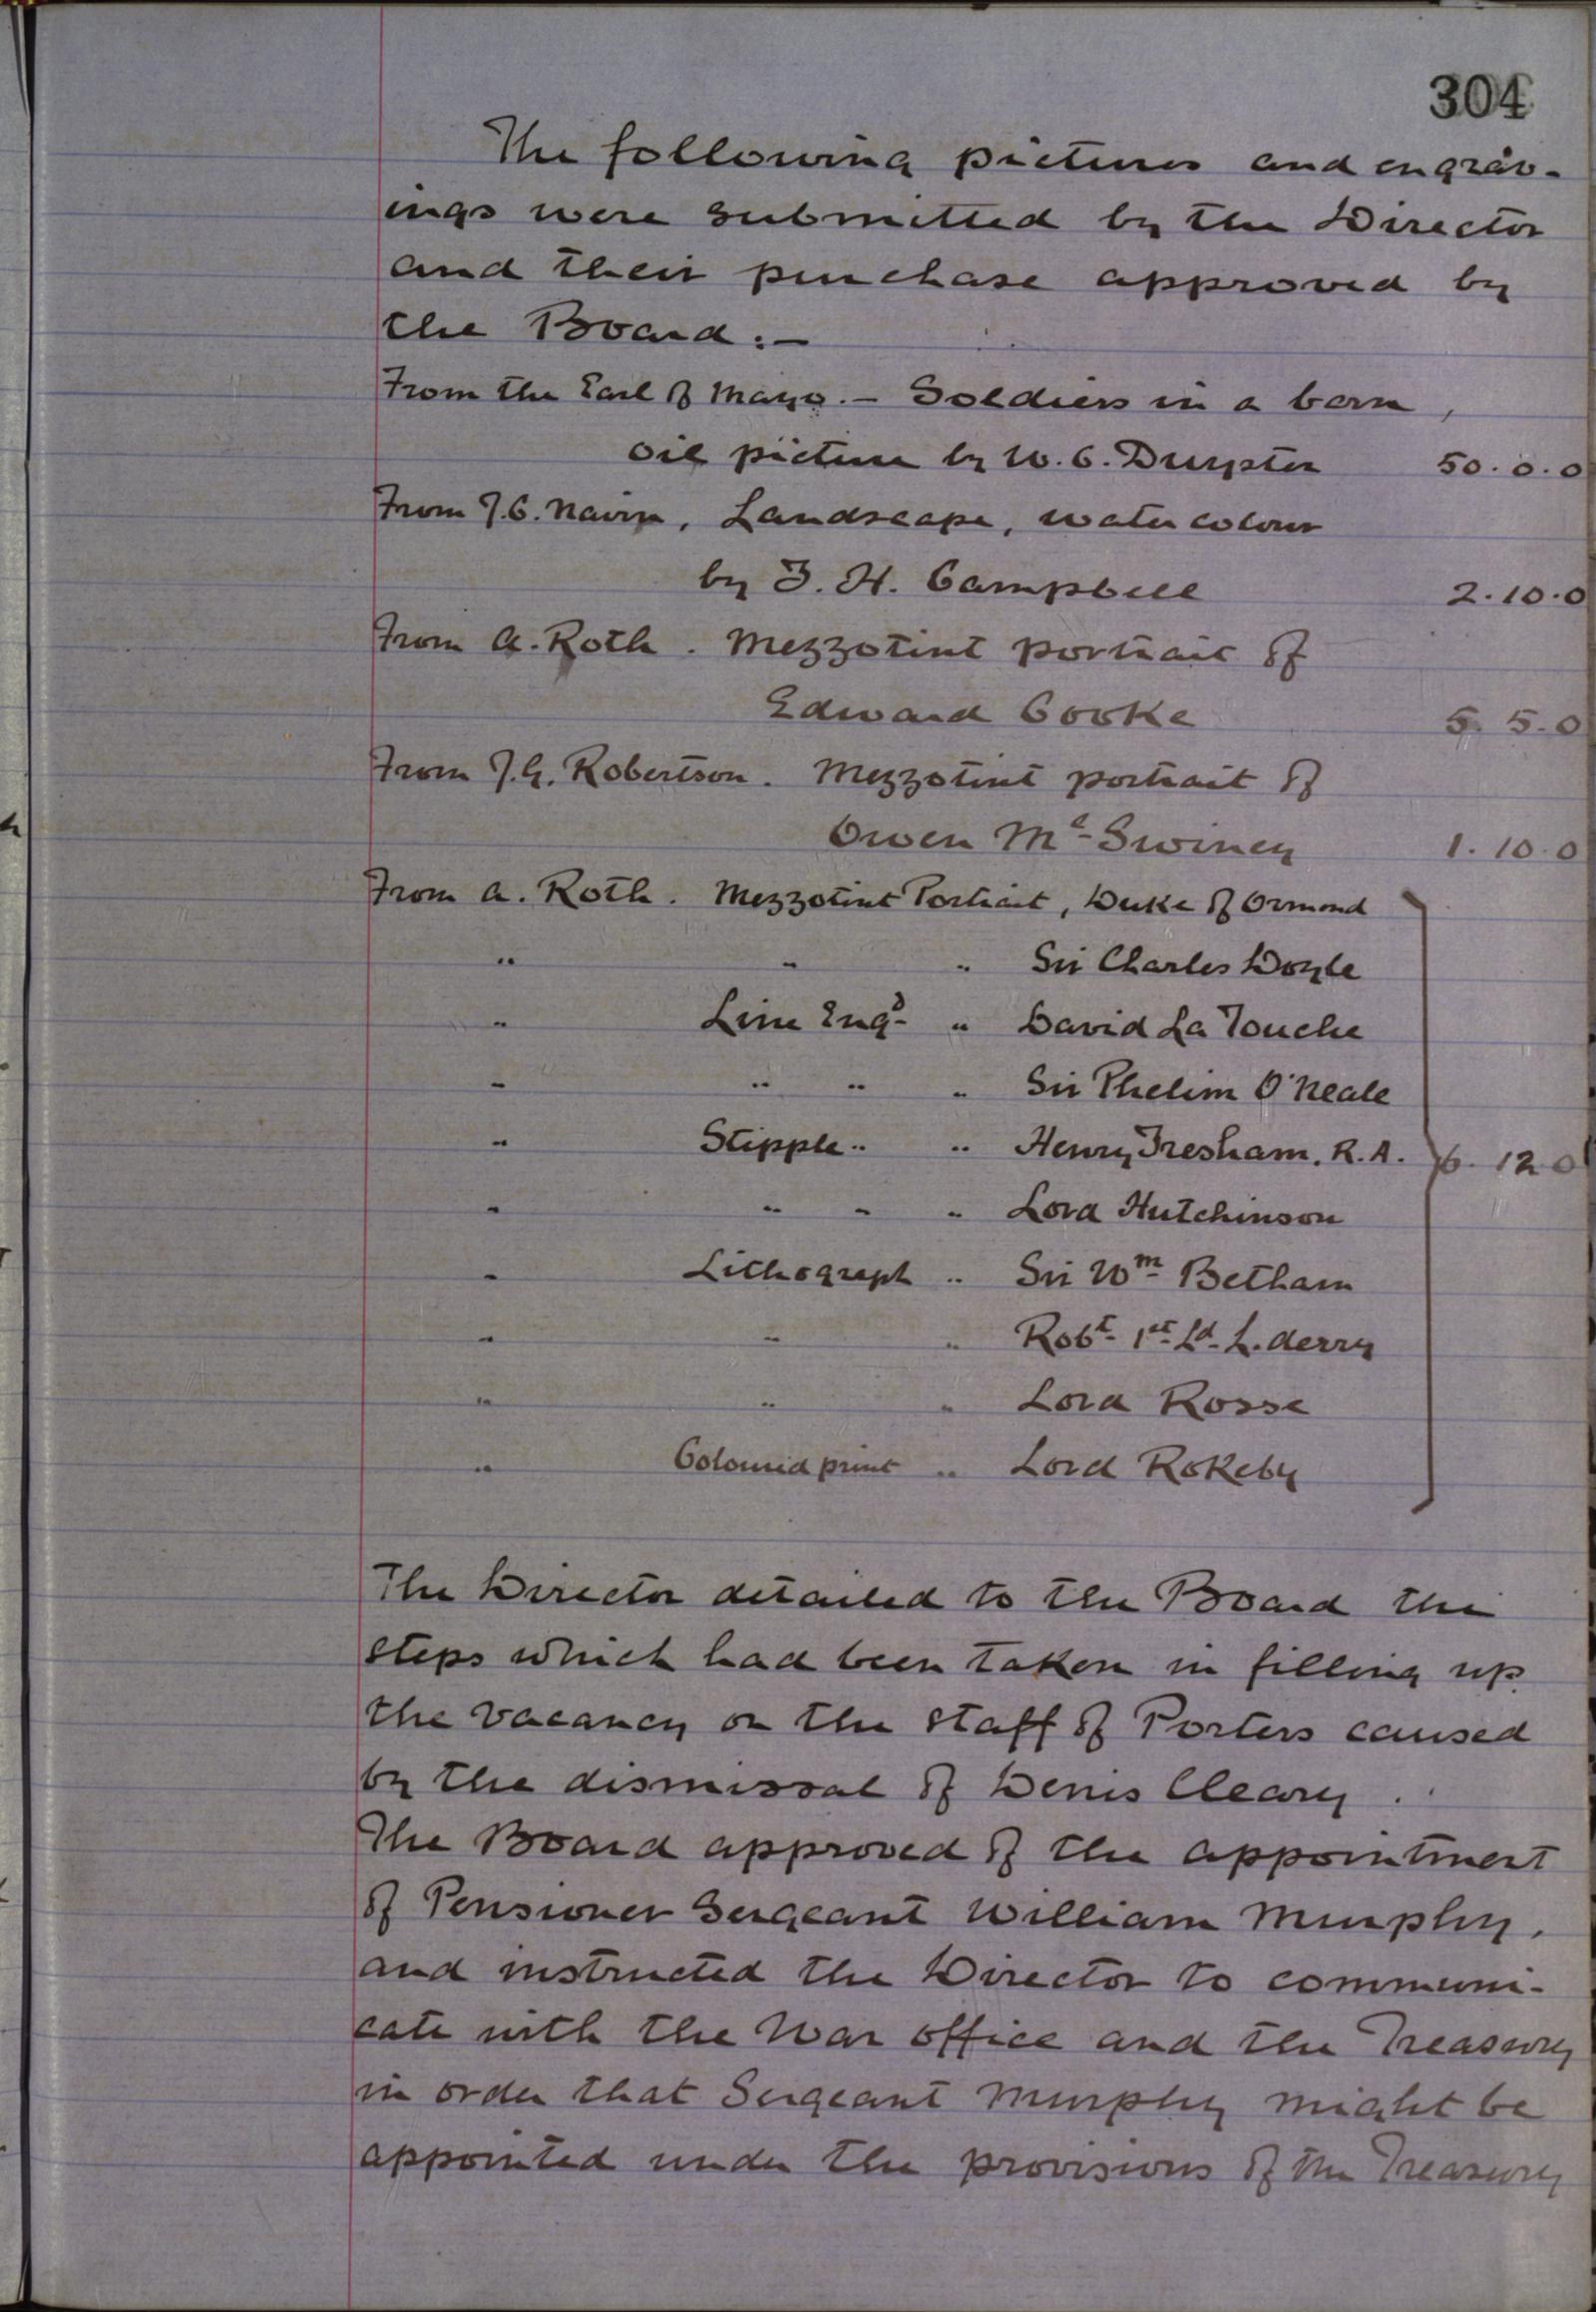 304
The following pictures and engrav-
ings were submitted by the Director
and their purchase approved by
the Board:—
From the Earl of Mayo. — Soldiers in a barn,
oil picture by W. C. Duyster 50.0.0
From J. C. Nairn, Landscape, water colour
by J. H. Campbell 2.10.0
From A. Roth. Mezzotint portrait of
Edward Cooke 5. 5.0
From J. G. Robertson. Mezzotint portrait of
Owen Mc Swiney 1. 10.0
From A. Roth. Mezzotint Portrait, Duke of Ormond
" " " Sir Charles Doyle
" Line Engd " David La Touche
" " " " Sir Phelim O'Neale
" Stipple " " Henry Tresham, R.A. 6. 12 0
" " " " Lord Hutchinson
" Lithograph " Sir Wm Betham
" " " Robt. 1st Ld. L.derry
" " " Lord Rosse
" Coloured print " Lord Rokeby
The Director detailed to the Board the
steps which had been taken in filling up
the vacancy on the staff of Porters caused
by the dismissal of Denis Cleary.
The Board approved of the appointment
of Pensioner Sergeant William Murphy,
and instructed the Director to communi-
cate with the War Office and the Treasury
in order that Sergeant Murphy might be
appointed under the provisions of the Treasury